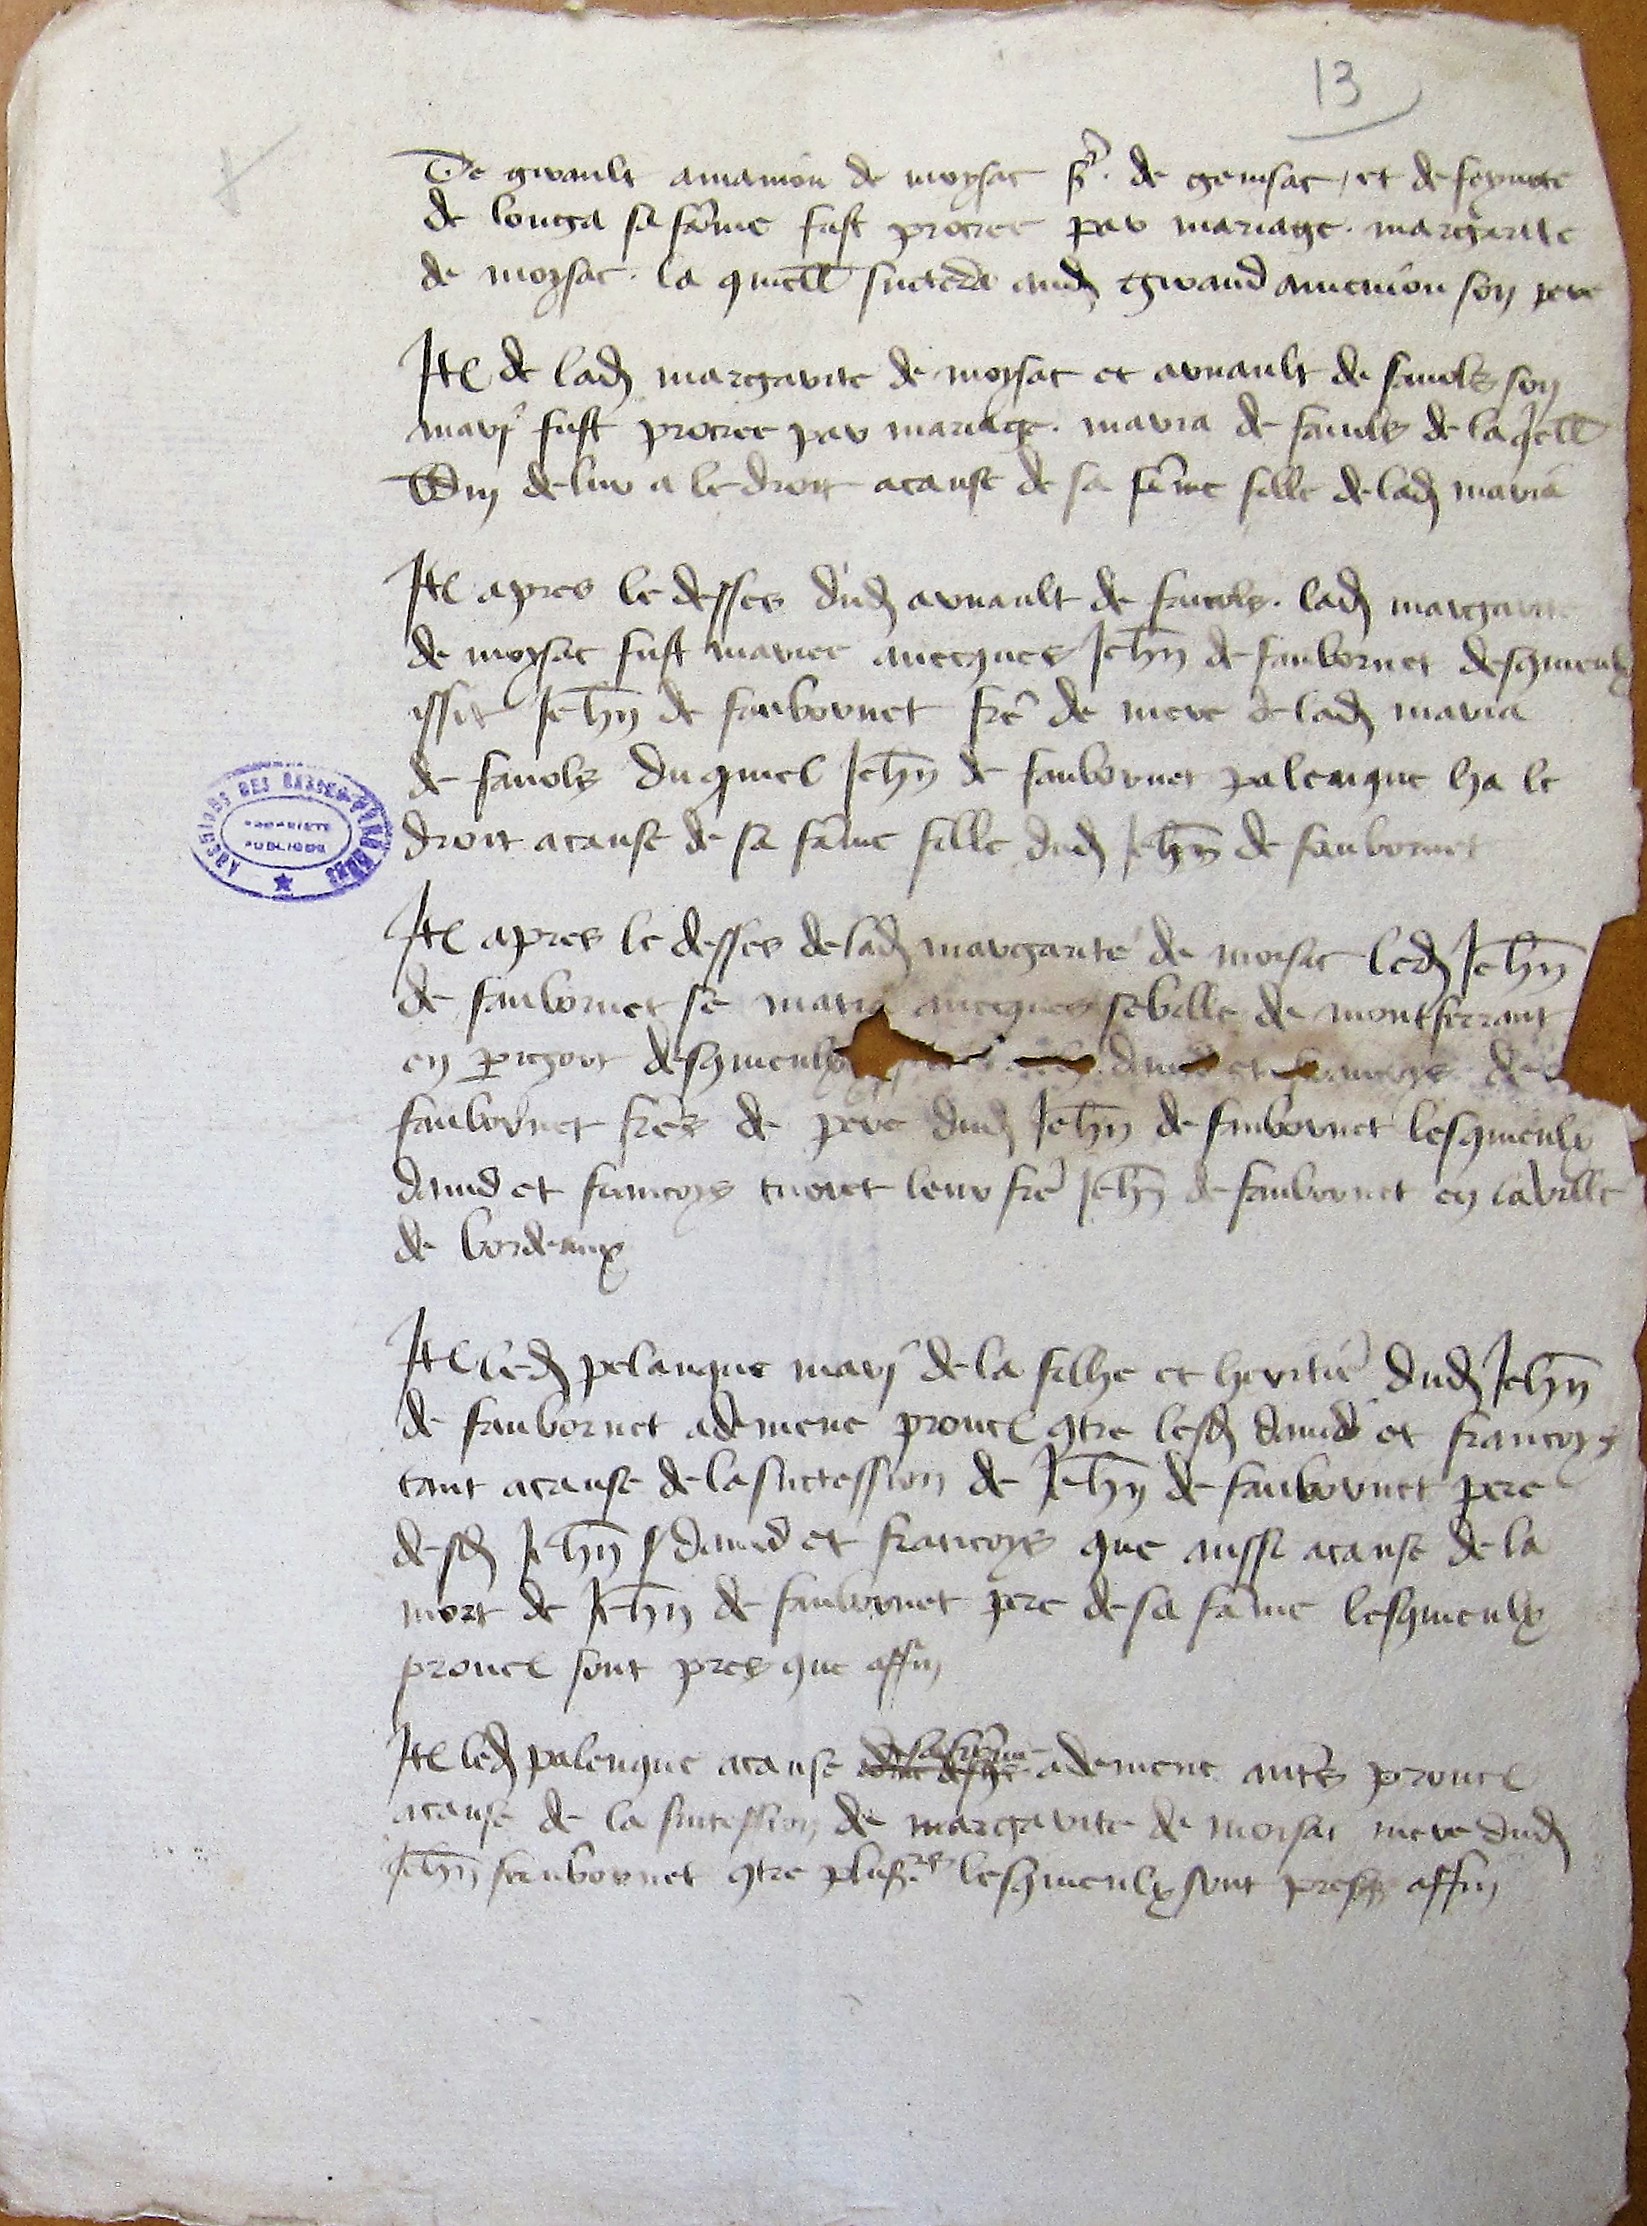 13
De girault amanion de moysac sr. de gensac, et de seynete
de longa sa fame fust procree par mariage. margarite
de moysac. la quell succeda aud giraud amenion son pere
Itl de lad margarite de moysac et arnault de fauols son
mary fust procree par mariage. maria de fauols de laqell
de lur a le droit acause de sa fame fille de lad maria
Itl apres le desses dud arnault de fauols. lad margarite
de moysac fust mariee auecques Jehn de faubornet desquieulx
issit Jehn de faubornet fre de mere de lad maria
de fauols du quiel Jehn de faubornet palenque ha le
droit acause de sa fame fille dud Jehn de faubornet
ARCHIVES DES BASSES-PYRENEES
PROPRIETE
PUBLIQUE
Itl apres le desses de lad margarite de moisac led Jehn
de faubornet se maria auecques sebille de montferrant
en perigort desquieulx dauid et francoys de
faubornet fres de pere dud Jehn de faubornet lesquieulx
dauid et francoys tueret leur fre Jehn de faubornet en la ville
de bordeaux
Itl led pelanque mary de la filhe et heritie dud Jehn
de faubornet ademene proucl qtre lesd dauid et francoys
tant acause de la succession de Jehn de faubornet pere
desd Jehn dauid et francoys que aussi acause de la
mort de Jehn de faubornet pere de sa fame lesquieulx
proucl sont pres que affin
Itl led palenque acause de sa feme ademene autes proucl
acause de la succession de margarite de moisac mere dud
Jehn faubornet qtre plusrs lesquieulx sont presq affin